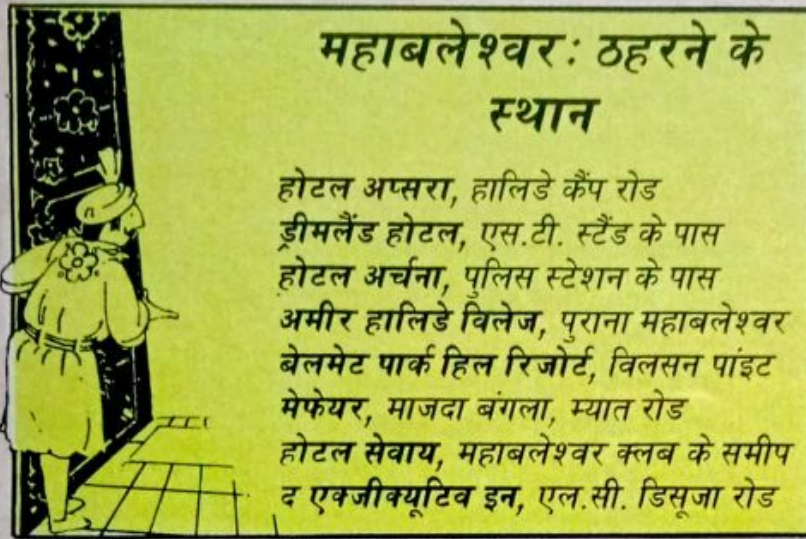 महाबलेश्वर: ठहरने के
स्थान
होटल अप्सरा, हालिडे कैंप रोड
ड्रीमलैंड होटल, एस.टी. स्टैंड के पास
होटल अर्चना, पुलिस स्टेशन के पास
अमीर हालिडे विलेज, पुराना महाबलेश्वर
बेलमेट पार्क हिल रिजोर्ट, विलसन पांइट
मेफेयर, माजदा बंगला, म्यात रोड
होटल सेवाय, महाबलेश्वर क्लब के समीप
द एक्जीक्यूटिव इन, एल.सी. डिसूजा रोड